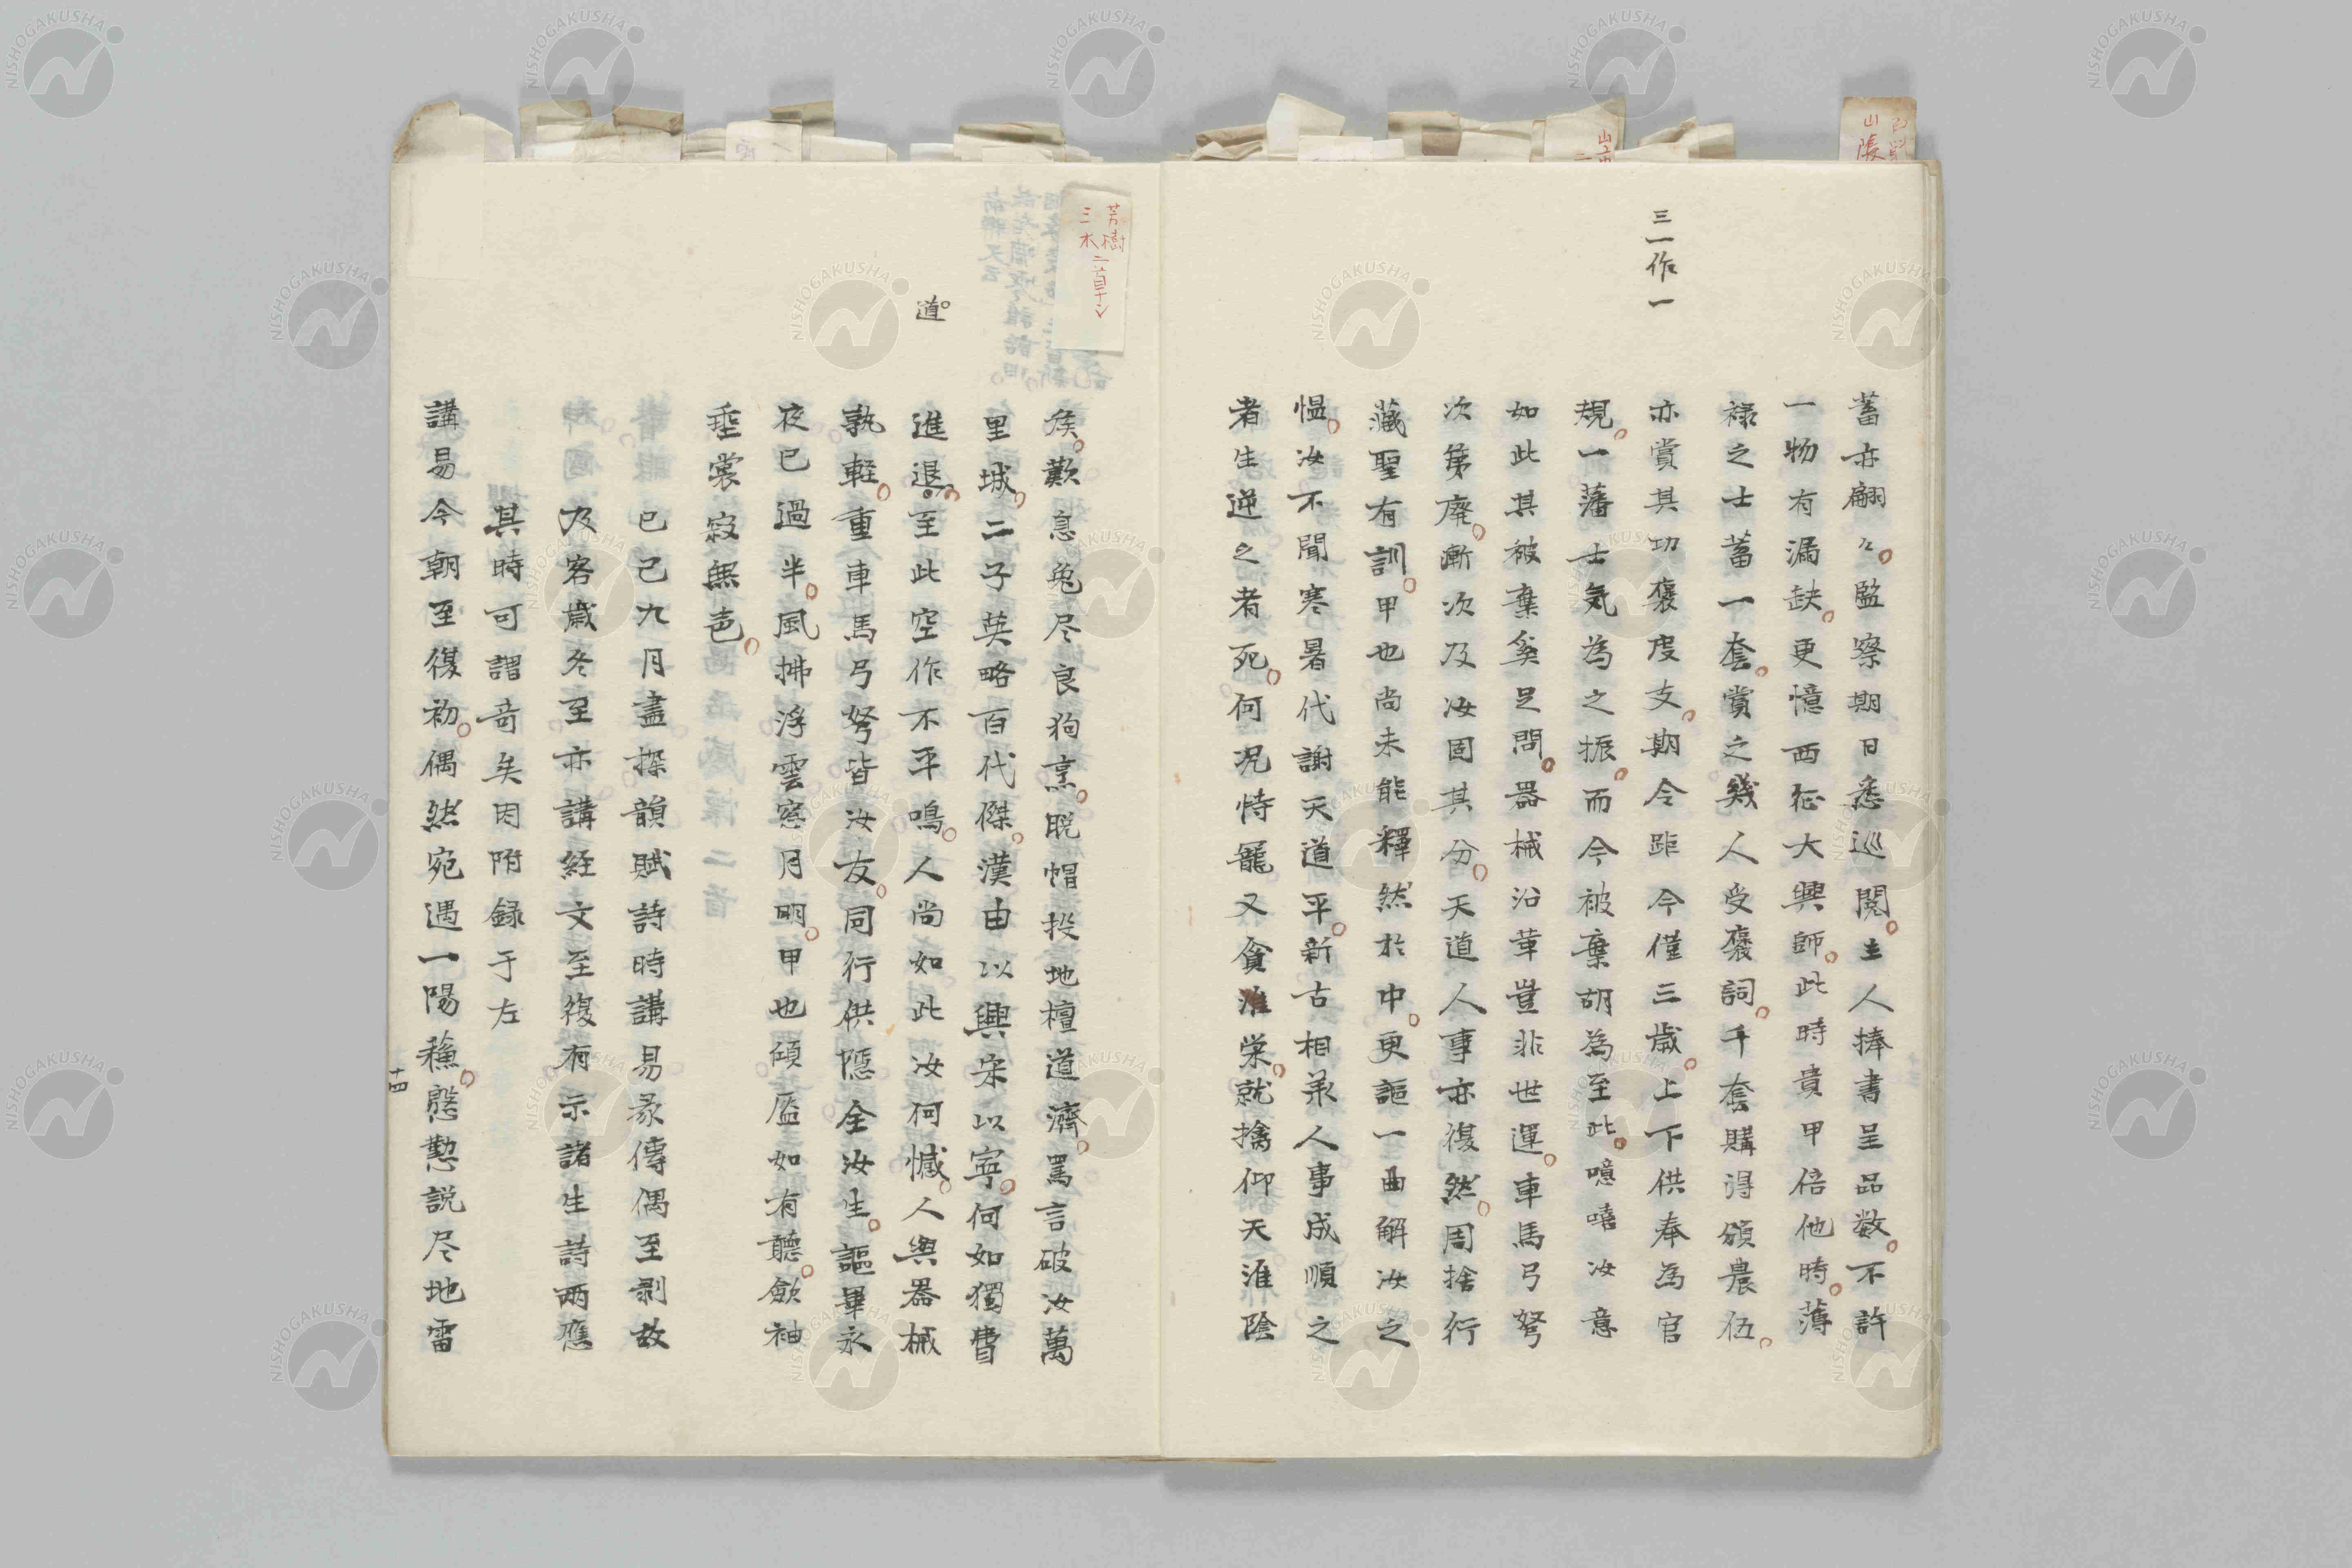 三一作一
蓄亦翩〻監察期日悉巡閲主人捧書呈品数不許
一物有漏缺更憶西征大興師此時貴甲倍他時薄
禄之士蓄一套賞之幾人受褒詞千套購得頒農伍
亦賞其功褒度支期令距今僅三歳上下供奉為官
規一藩士気為之振而今被棄胡為至此噫嘻汝意
如此其被棄奚足問器械沿革豈非世運車馬弓弩
次第廃漸次及汝固其分天道人事亦復然周捨行
藏聖有訓甲也尚未能釋然於中更謳一曲解汝之
愠汝不聞寒暑代謝天道平新古相承人事成順之
者生逆之者死何况恃寵又貪榮就擒仰天淮陰
芳樹
三水二首ナシ
道
矦歎息兔尽良狗烹脱帽投地檀道濟罵言破汝萬
里城二子英略百代傑漢由以興宋以寧何如獨費
進退至此空作不平鳴人尚如此汝何憾人與器械
孰軽重車馬弓弩皆汝友同行供隠全汝生謳畢永
夜已過半風拂浮雲窓月明甲也傾盔如有聽歛袖
垂裳寂無声
己巳九月盡探韻賦詩時講易彖傳偶至剥故
及客歳冬至亦講経文至復有示諸生詩両應
其時可謂奇矣因附録于左
講易今朝至復初偶然宛遇一陽穐慇懃説尽地雷
十四
NISHOGAKUSHA